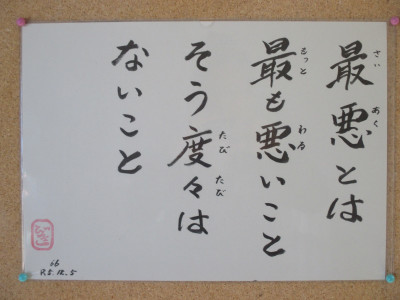 最悪とは
さい
あく
最も悪いこと
もっと
わる
そう度々は
たび
たび
ないこと
66